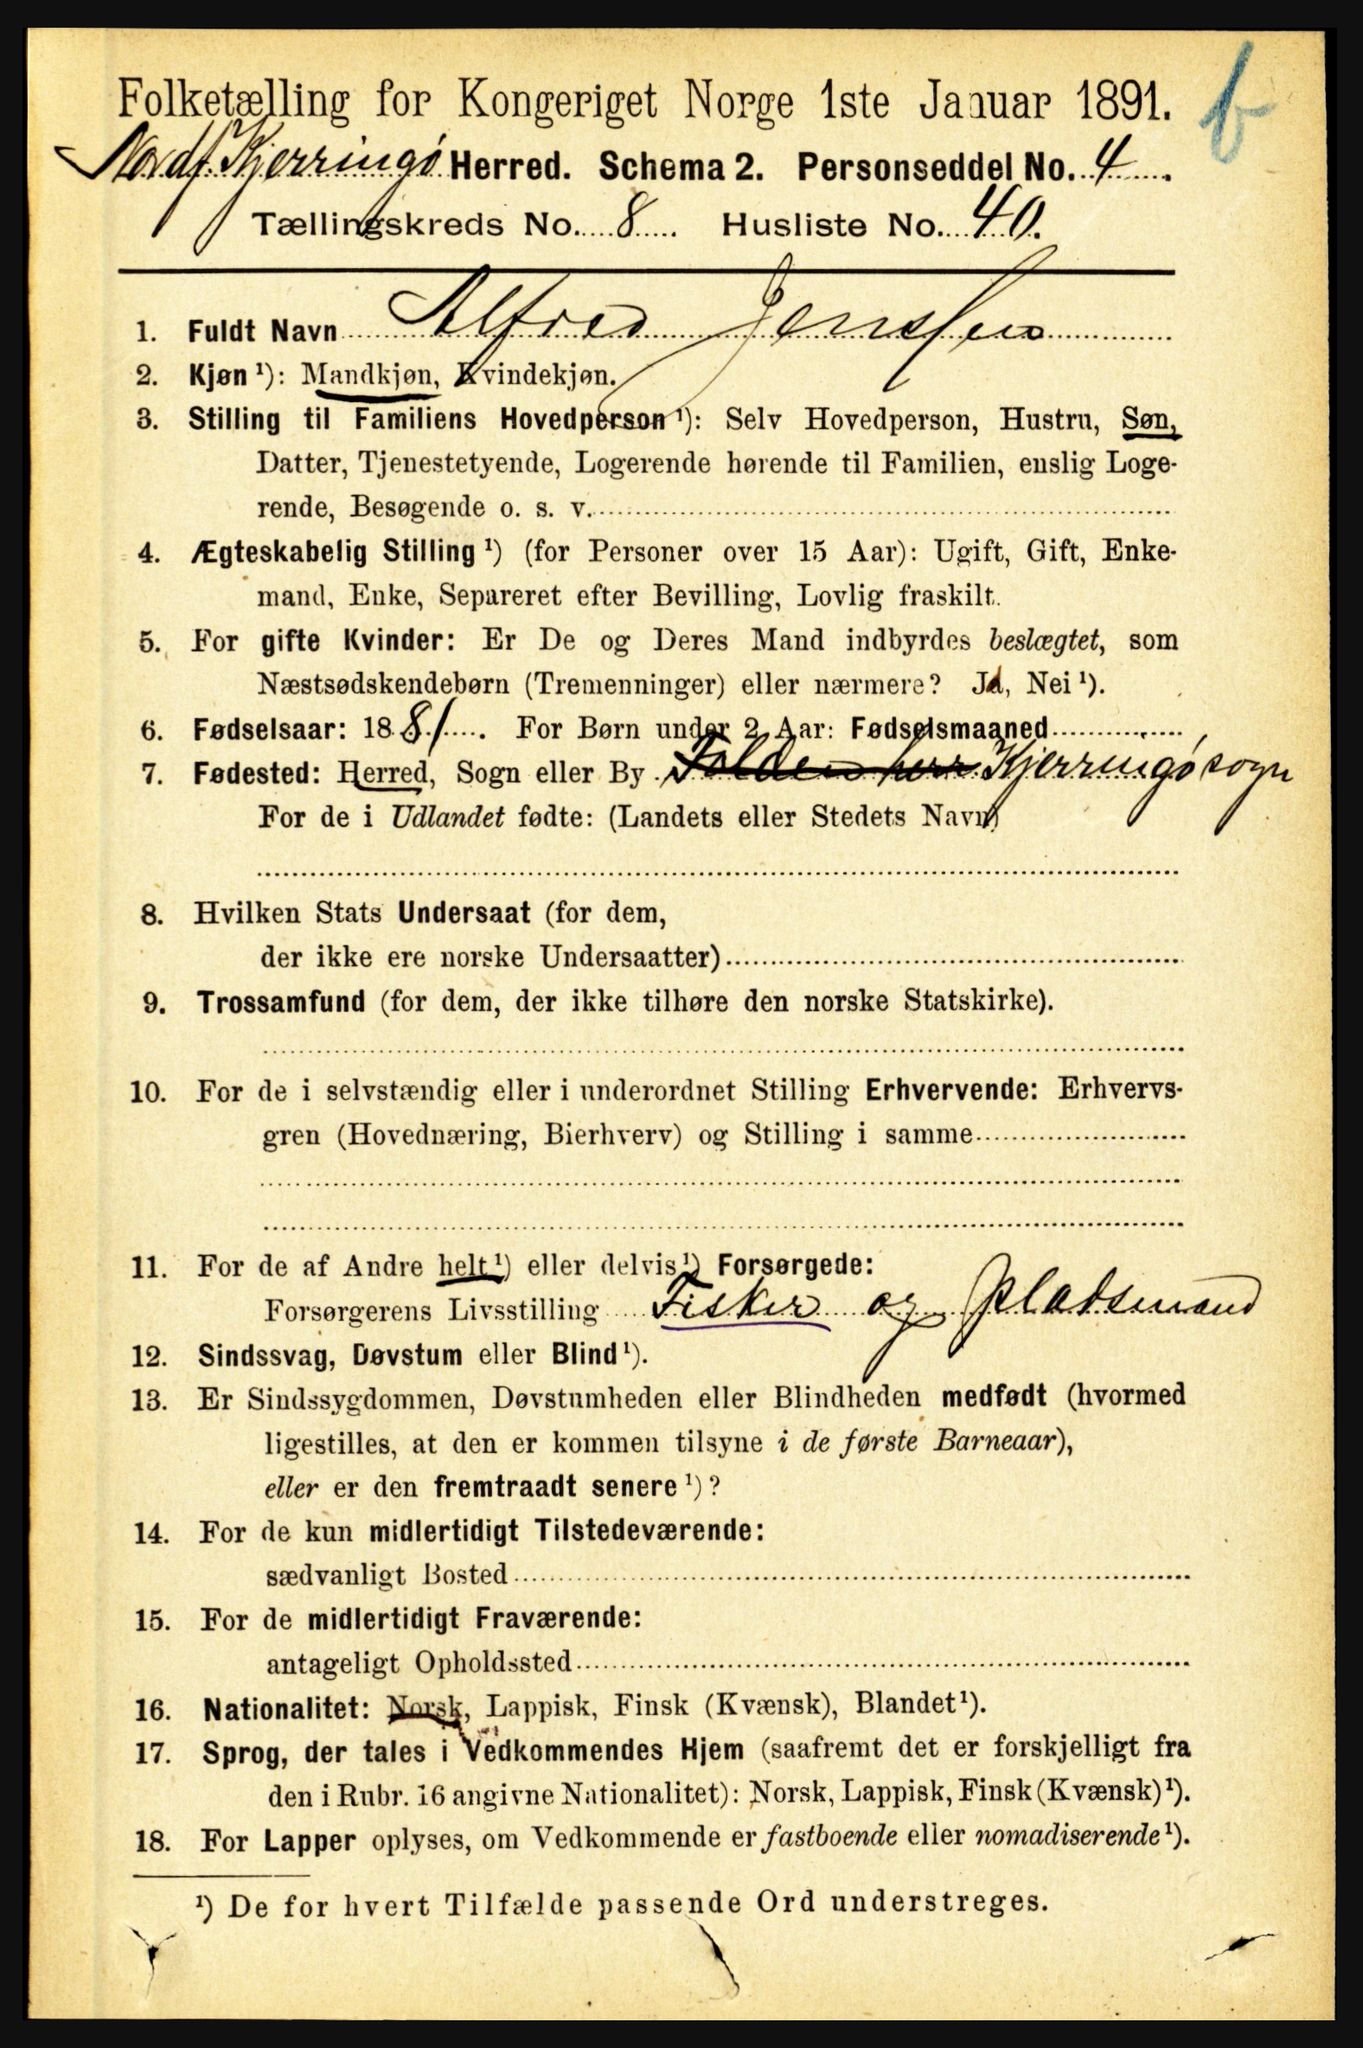 Folketælling for Kongeriget Norge 1ste Januar 1891.
b
Nordf. Kjerringø Herred. Schema 2. Personseddel No. 4
Tællingskreds No. 8 Husliste No. 40.
1. Fuldt Navn Alfred Jenssen
2. Kjøn ¹): Mandkjøn, Kvindekjøn.
3. Stilling til Familiens Hovedperson ¹): Selv Hovedperson, Hustru, Søn,
Datter, Tjenestetyende, Logerende hørende til Familien, enslig Loge-
rende, Besøgende o. s. v.
4. Ægteskabelig Stilling ¹) (for Personer over 15 Aar): Ugift, Gift, Enke-
mand, Enke, Separeret efter Bevilling, Lovlig fraskilt.
5. For gifte Kvinder: Er De og Deres Mand indbyrdes beslægtet, som
Næstsødskendebørn (Tremenninger) eller nærmere? Ja, Nei ¹).
6. Fødselsaar: 1881. For Børn under 2 Aar: Fødselsmaaned
7. Fødested: Herred, Sogn eller By Folden herr. Kjerringø sogn
For de i Udlandet fødte: (Landets eller Stedets Navn)
8. Hvilken Stats Undersaat (for dem,
der ikke ere norske Undersaatter)
9. Trossamfund (for dem, der ikke tilhøre den norske Statskirke).
10. For de i selvstændig eller i underordnet Stilling Erhvervende: Erhvervs-
gren (Hovednæring, Bierhverv) og Stilling i samme
11. For de af Andre helt ¹) eller delvis ¹) Forsørgede:
Forsørgerens Livsstilling Fisker og pladsmand
12. Sindssvag, Døvstum eller Blind ¹).
13. Er Sindssygdommen, Døvstumheden eller Blindheden medfødt (hvormed
ligestilles, at den er kommen tilsyne i de første Barneaar),
eller er den fremtraadt senere ¹)?
14. For de kun midlertidigt Tilstedeværende:
sædvanligt Bosted
15. For de midlertidigt Fraværende:
antageligt Opholdssted
16. Nationalitet: Norsk, Lappisk, Finsk (Kvænsk), Blandet ¹).
17. Sprog, der tales i Vedkommendes Hjem (saafremt det er forskjelligt fra
den i Rubr. 16 angivne Nationalitet): Norsk, Lappisk, Finsk (Kvænsk) ¹).
18. For Lapper oplyses, om Vedkommende er fastboende eller nomadiserende ¹).
¹) De for hvert Tilfælde passende Ord understreges.